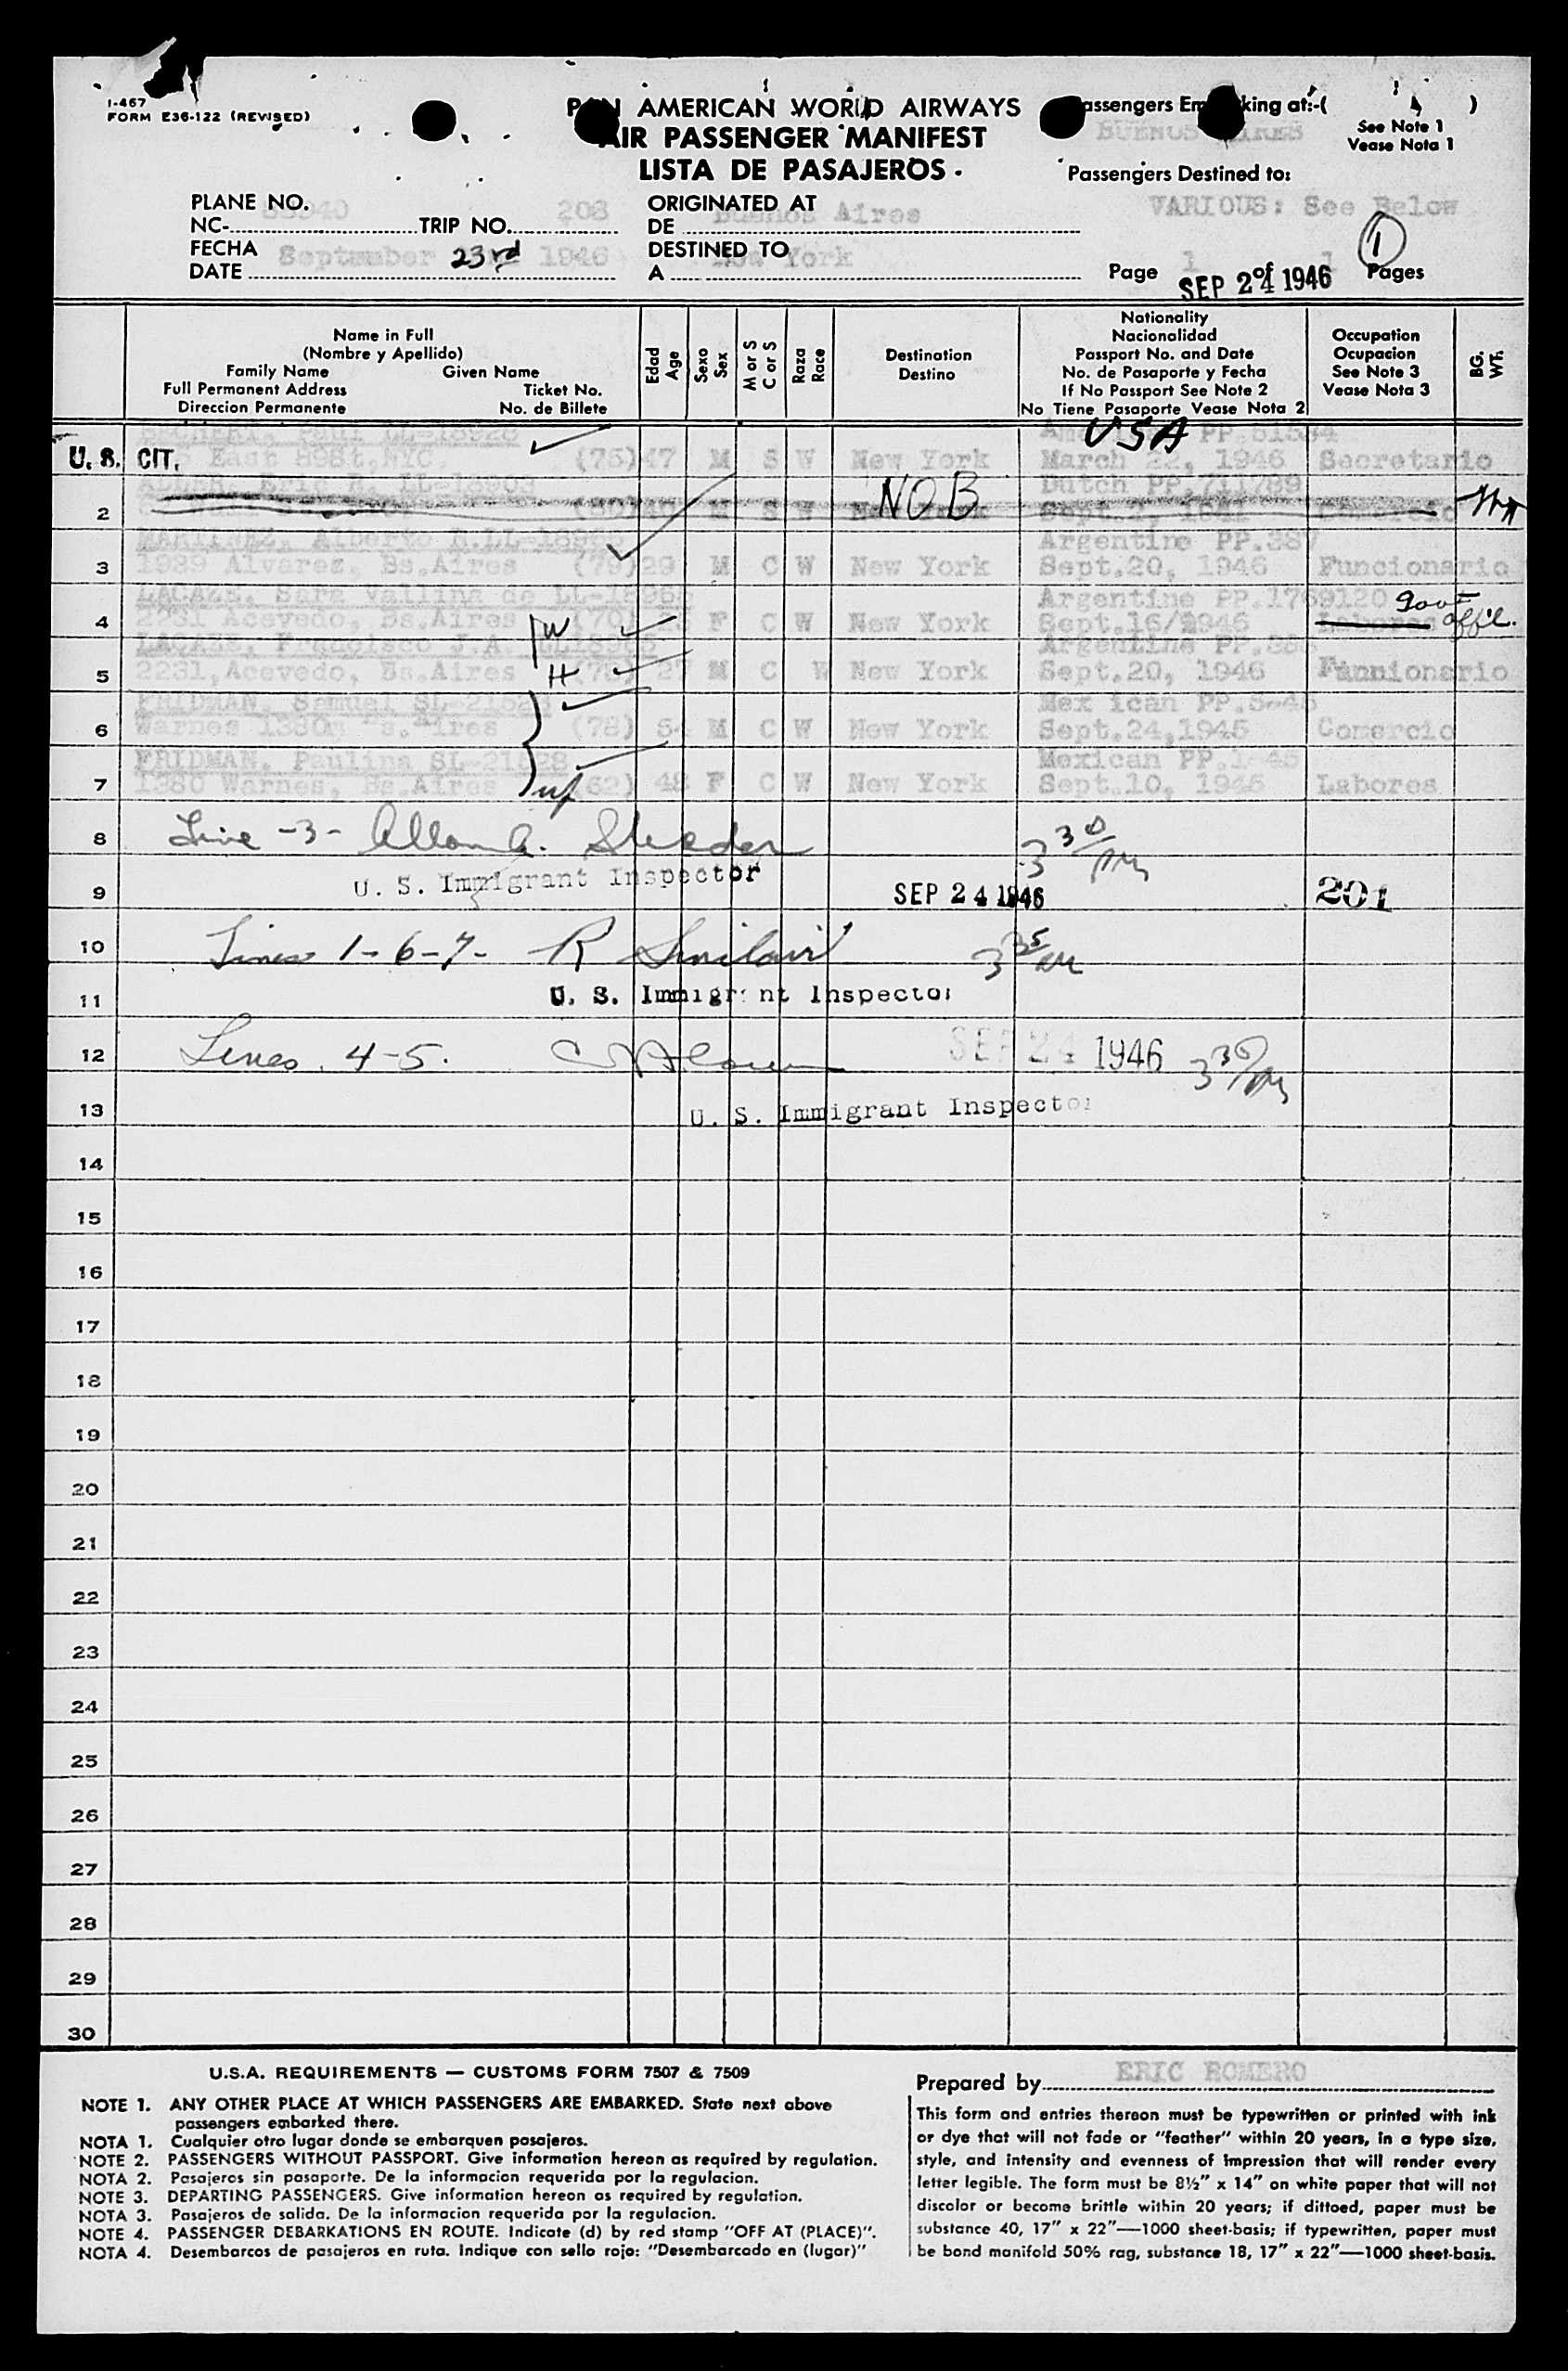 I-467
FORM E36-122 (REVISED)
PAN AMERICAN WORLD AIRWAYS
AIR PASSENGER MANIFEST
LISTA DE PASAJEROS
Passengers Embarking at:-( )
BUENOS AIRES
See Note 1
Vease Nota 1
Passengers Destined to:
VARIOUS: See Below
PLANE NO.
NC- TRIP NO. 203
FECHA
DATE September 23rd 1946
ORIGINATED AT
DE Buenos Aires
DESTINED TO
A New York
1
Page 1 of 1 Pages
SEP 24 1946
Name in Full
(Nombre y Apellido)
Family Name Given Name
Full Permanent Address Ticket No.
Direccion Permanente No. de Billete
Edad Age
Sexo Sex
M or S C or S
Raza Race
Destination
Destino
Nationality
Nacionalidad
Passport No. and Date
No. de Pasaporte y Fecha
If No Passport See Note 2
No Tiene Pasaporte Vease Nota 2
Occupation
Ocupacion
See Note 3
Vease Nota 3
BG. WT.
Paul LL-18926 PP.51534 USA
U. S. CIT. East 89St,NYC. (75) 47 M S W New York March 22, 1946 Secretario
ADLER, Eric Dutch PP.711789
2 M S W New York NOB Sept.
MARTINEZ, Alberto Argentine PP.387
3 1939 Alvarez, Bs.Aires (79) 29 M C W New York Sept.20, 1946 Funcionario
LACAZE, Sara Vallina de LL-18966 Argentine PP.1769120
4 2231 Acevedo, Bs.Aires (70) F C W New York Sept.16/1946 Labores Govt offl.
W
LACAZE, Francisco J.A. Argentine PP.
5 2231, Acevedo, Bs.Aires 27 M C W New York Sept.20, 1946 Funcionario
H
FRIDMAN, Samuel SL-21528 Mexican PP.
6 Warnes 1380 Bs. Aires (78) 54 M C W New York Sept.24,1945 Comercio
FRIDMAN, Paulina SL-21528 Mexican PP.
7 1380 Warnes, Bs.Aires (62) 48 F C W New York Sept.10, 1945 Labores
8 Line -3- Allan A. 3 30 PM
9 U. S. Immigrant Inspector SEP 24 1946 201
10 Lines 1-6-7- R 3 35 PM
11 U. S. Immigrant Inspector
12 Lines 4-5. SEP 24 1946 3 30 PM
13 U. S. Immigrant Inspector
14
15
16
17
18
19
20
21
22
23
24
25
26
27
28
29
30
U.S.A. REQUIREMENTS — CUSTOMS FORM 7507 & 7509
NOTE 1. ANY OTHER PLACE AT WHICH PASSENGERS ARE EMBARKED. State next above
passengers embarked there.
NOTA 1. Cualquier otro lugar donde se embarquen pasajeros.
NOTE 2. PASSENGERS WITHOUT PASSPORT. Give information hereon as required by regulation.
NOTA 2. Pasajeros sin pasaporte. De la informacion requerida por la regulacion.
NOTE 3. DEPARTING PASSENGERS. Give information hereon as required by regulation.
NOTA 3. Pasajeros de salida. De la informacion requerida por la regulacion.
NOTE 4. PASSENGER DEBARKATIONS EN ROUTE. Indicate (d) by red stamp "OFF AT (PLACE)".
NOTA 4. Desembarcos de pasajeros en ruta. Indique con sello rojo: "Desembarcado en (lugar)"
Prepared by ERIC ROMERO
This form and entries thereon must be typewritten or printed with ink
or dye that will not fade or "feather" within 20 years, in a type size,
style, and intensity and evenness of impression that will render every
letter legible. The form must be 8½" x 14" on white paper that will not
discolor or become brittle within 20 years; if dittoed, paper must be
substance 40, 17" x 22"—1000 sheet-basis; if typewritten, paper must
be bond manifold 50% rag, substance 18, 17" x 22"—1000 sheet-basis.